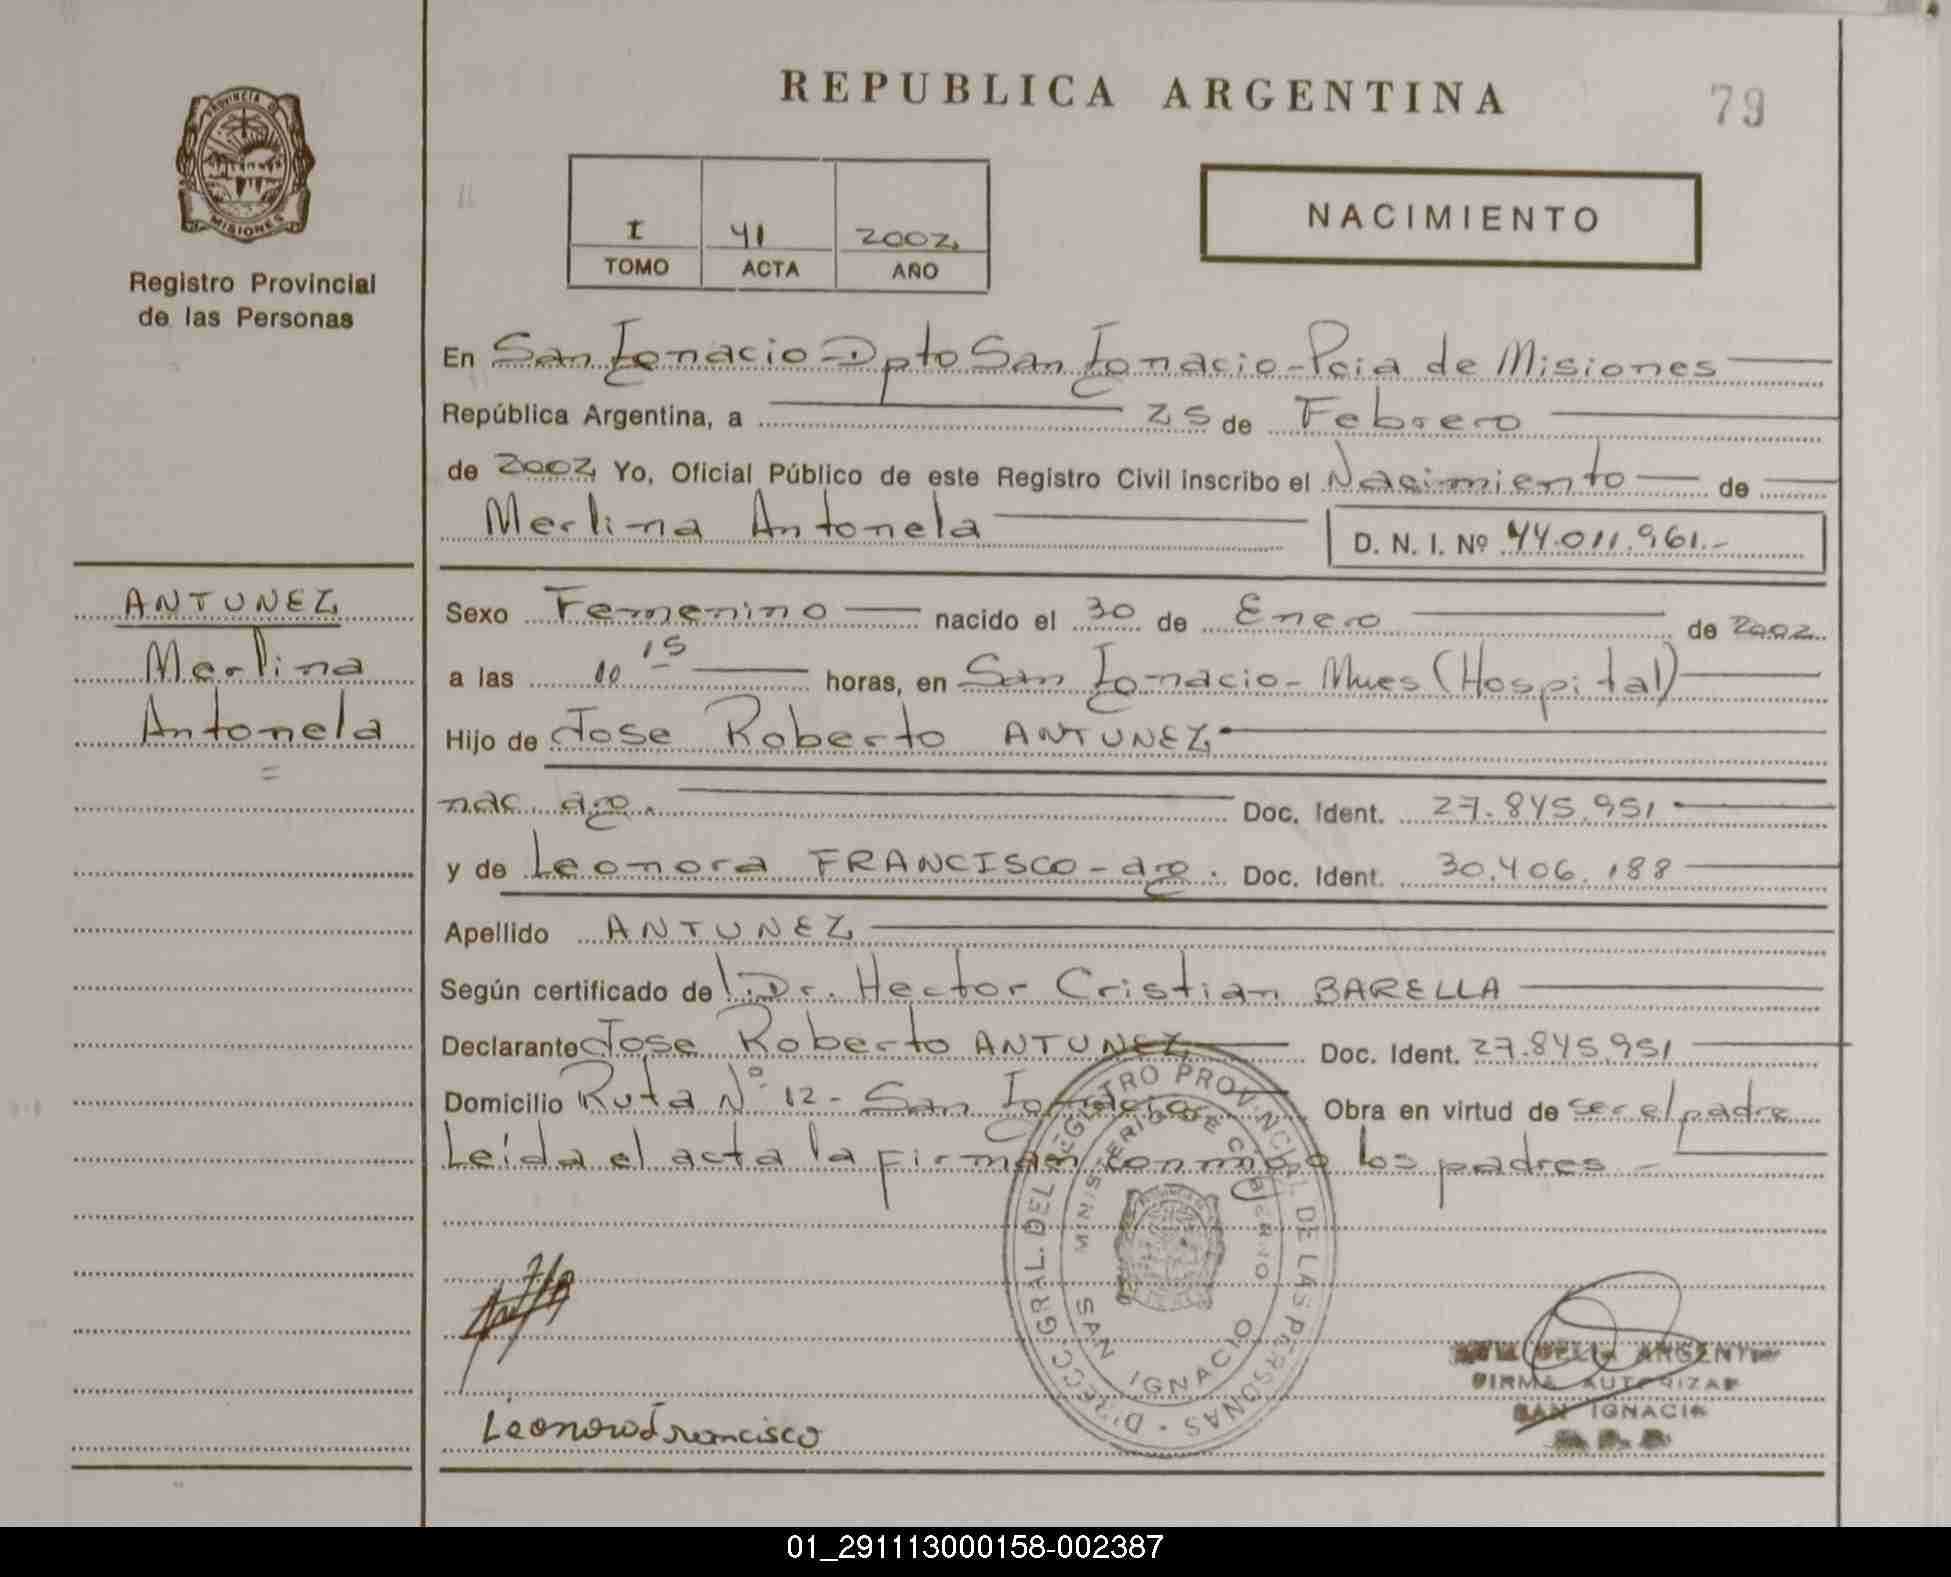 REPUBLICA ARGENTINA
79
PROVINCIA DE
MISIONES
Registro Provincial
de las Personas
I 41 2002
TOMO ACTA AÑO
NACIMIENTO
En San Ignacio Dpto San Ignacio - Pcia de Misiones
República Argentina, a 25 de Febrero
de 2002 Yo, Oficial Público de este Registro Civil inscribo el Nacimiento de
Merlina Antonela D. N. I. Nº 44.011.961.-
ANTUNEZ
Merlina
Antonela
Sexo Femenino nacido el 30 de Enero de 2002
a las 10 15 horas, en San Ignacio - Mnes (Hospital)
Hijo de Jose Roberto ANTUNEZ
nac. arg. Doc. Ident. 27.845.951
y de Leonora FRANCISCO - arg. Doc. Ident. 30.406.188
Apellido ANTUNEZ
Según certificado de Dr. Hector Cristian BARELLA
Declarante Jose Roberto ANTUNEZ Doc. Ident. 27.845.951
Domicilio Ruta Nº 12 - San Ignacio Obra en virtud de ser el padre
Leída el acta la firman conmigo los padres -
DIRECC. GRAL. DEL REGISTRO PROVINCIAL DE LAS PERSONAS
MINISTERIO DE GOBIERNO
SAN IGNACIO
Leonora Francisco
FIRMA AUTORIZADA
SAN IGNACIO
01_291113000158-002387